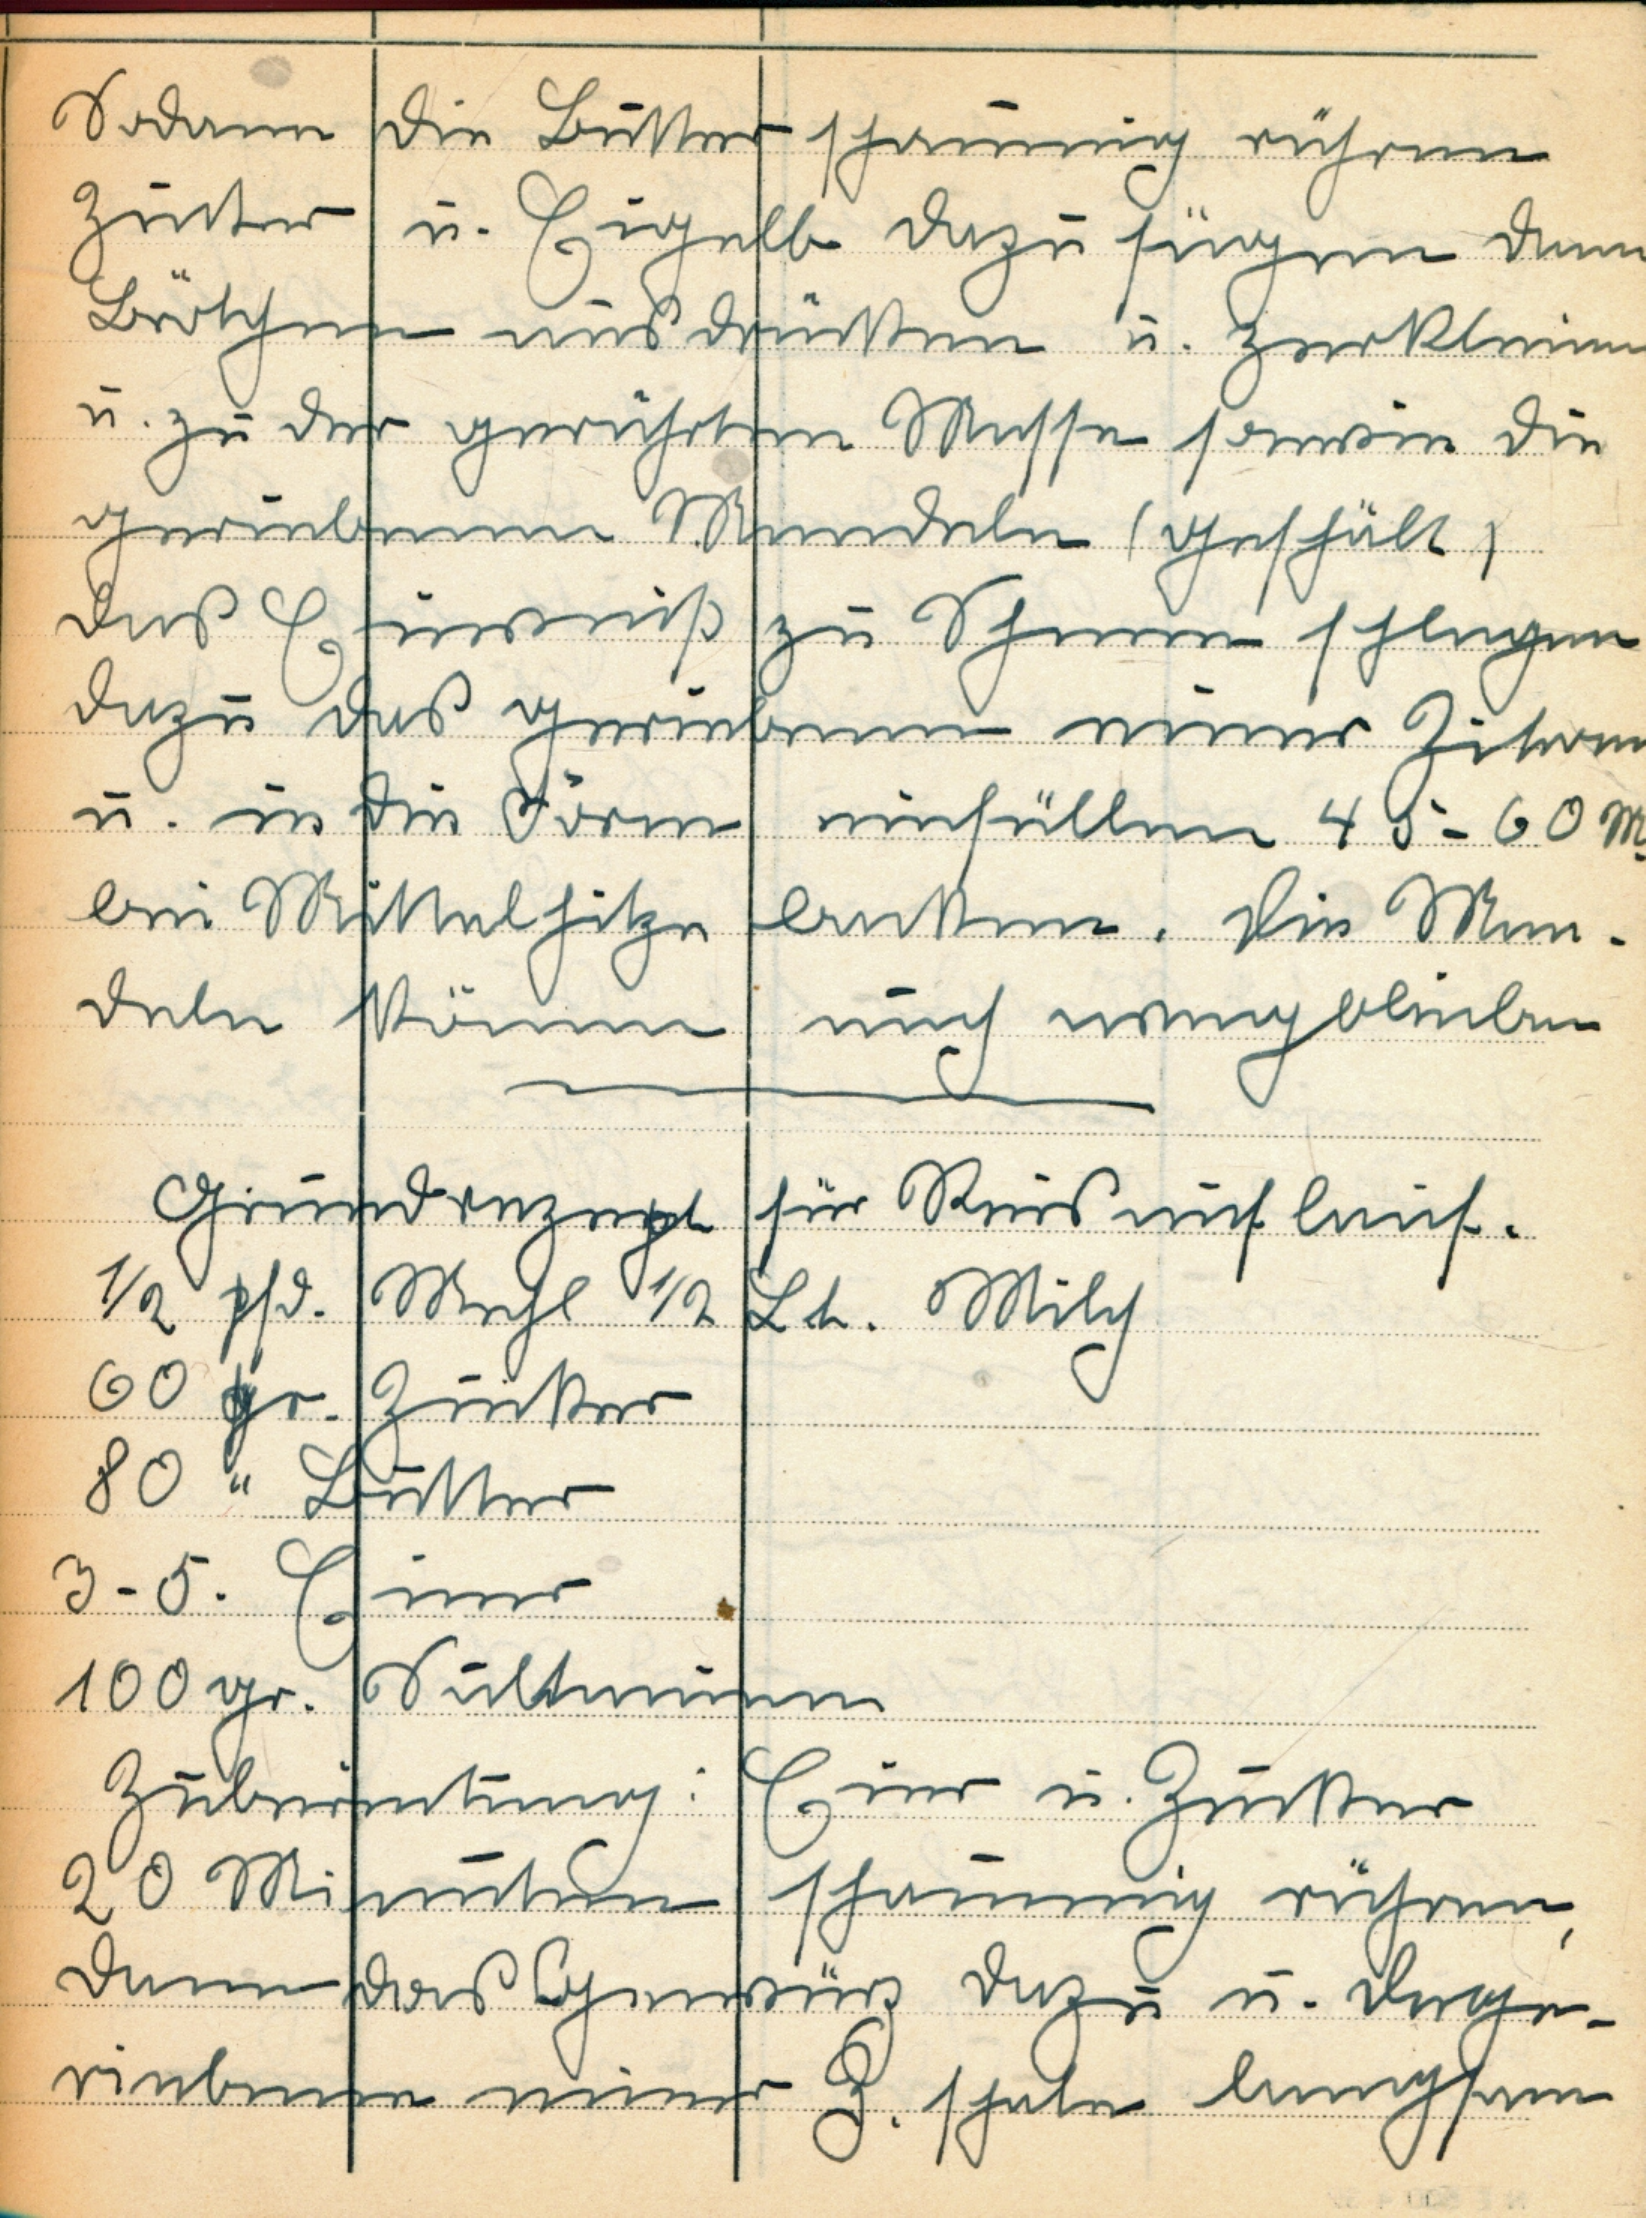 Sodann die Butter schaumig rühren
Zucker u. Eigelb dazu fügen dann
Brötchen ausdrücken u. zerkleinern
u. zu der gerührten Masse sowie die
geriebenen Mandeln (geschält)
das Eiweiß zu Schnee schlagen
dazu das geriebene einer Zitrone
u. in die Form einfüllen 45-60 M.
bei Mittelhitze backen. Die Man-
deln können auch wegbleiben
Grundrezept für Reisauflauf.
1/2 pfd. Mehl 1/2 Lt. Milch
60 gr. Zucker
80 " Butter
3-5. Eier
100 gr. Sultaninen
Zubereitung: Eier u. Zucker
20 Minuten schaumig rühren,
dann das Gewürz dazu u. das ge-
riebene einer Z. schale langsam